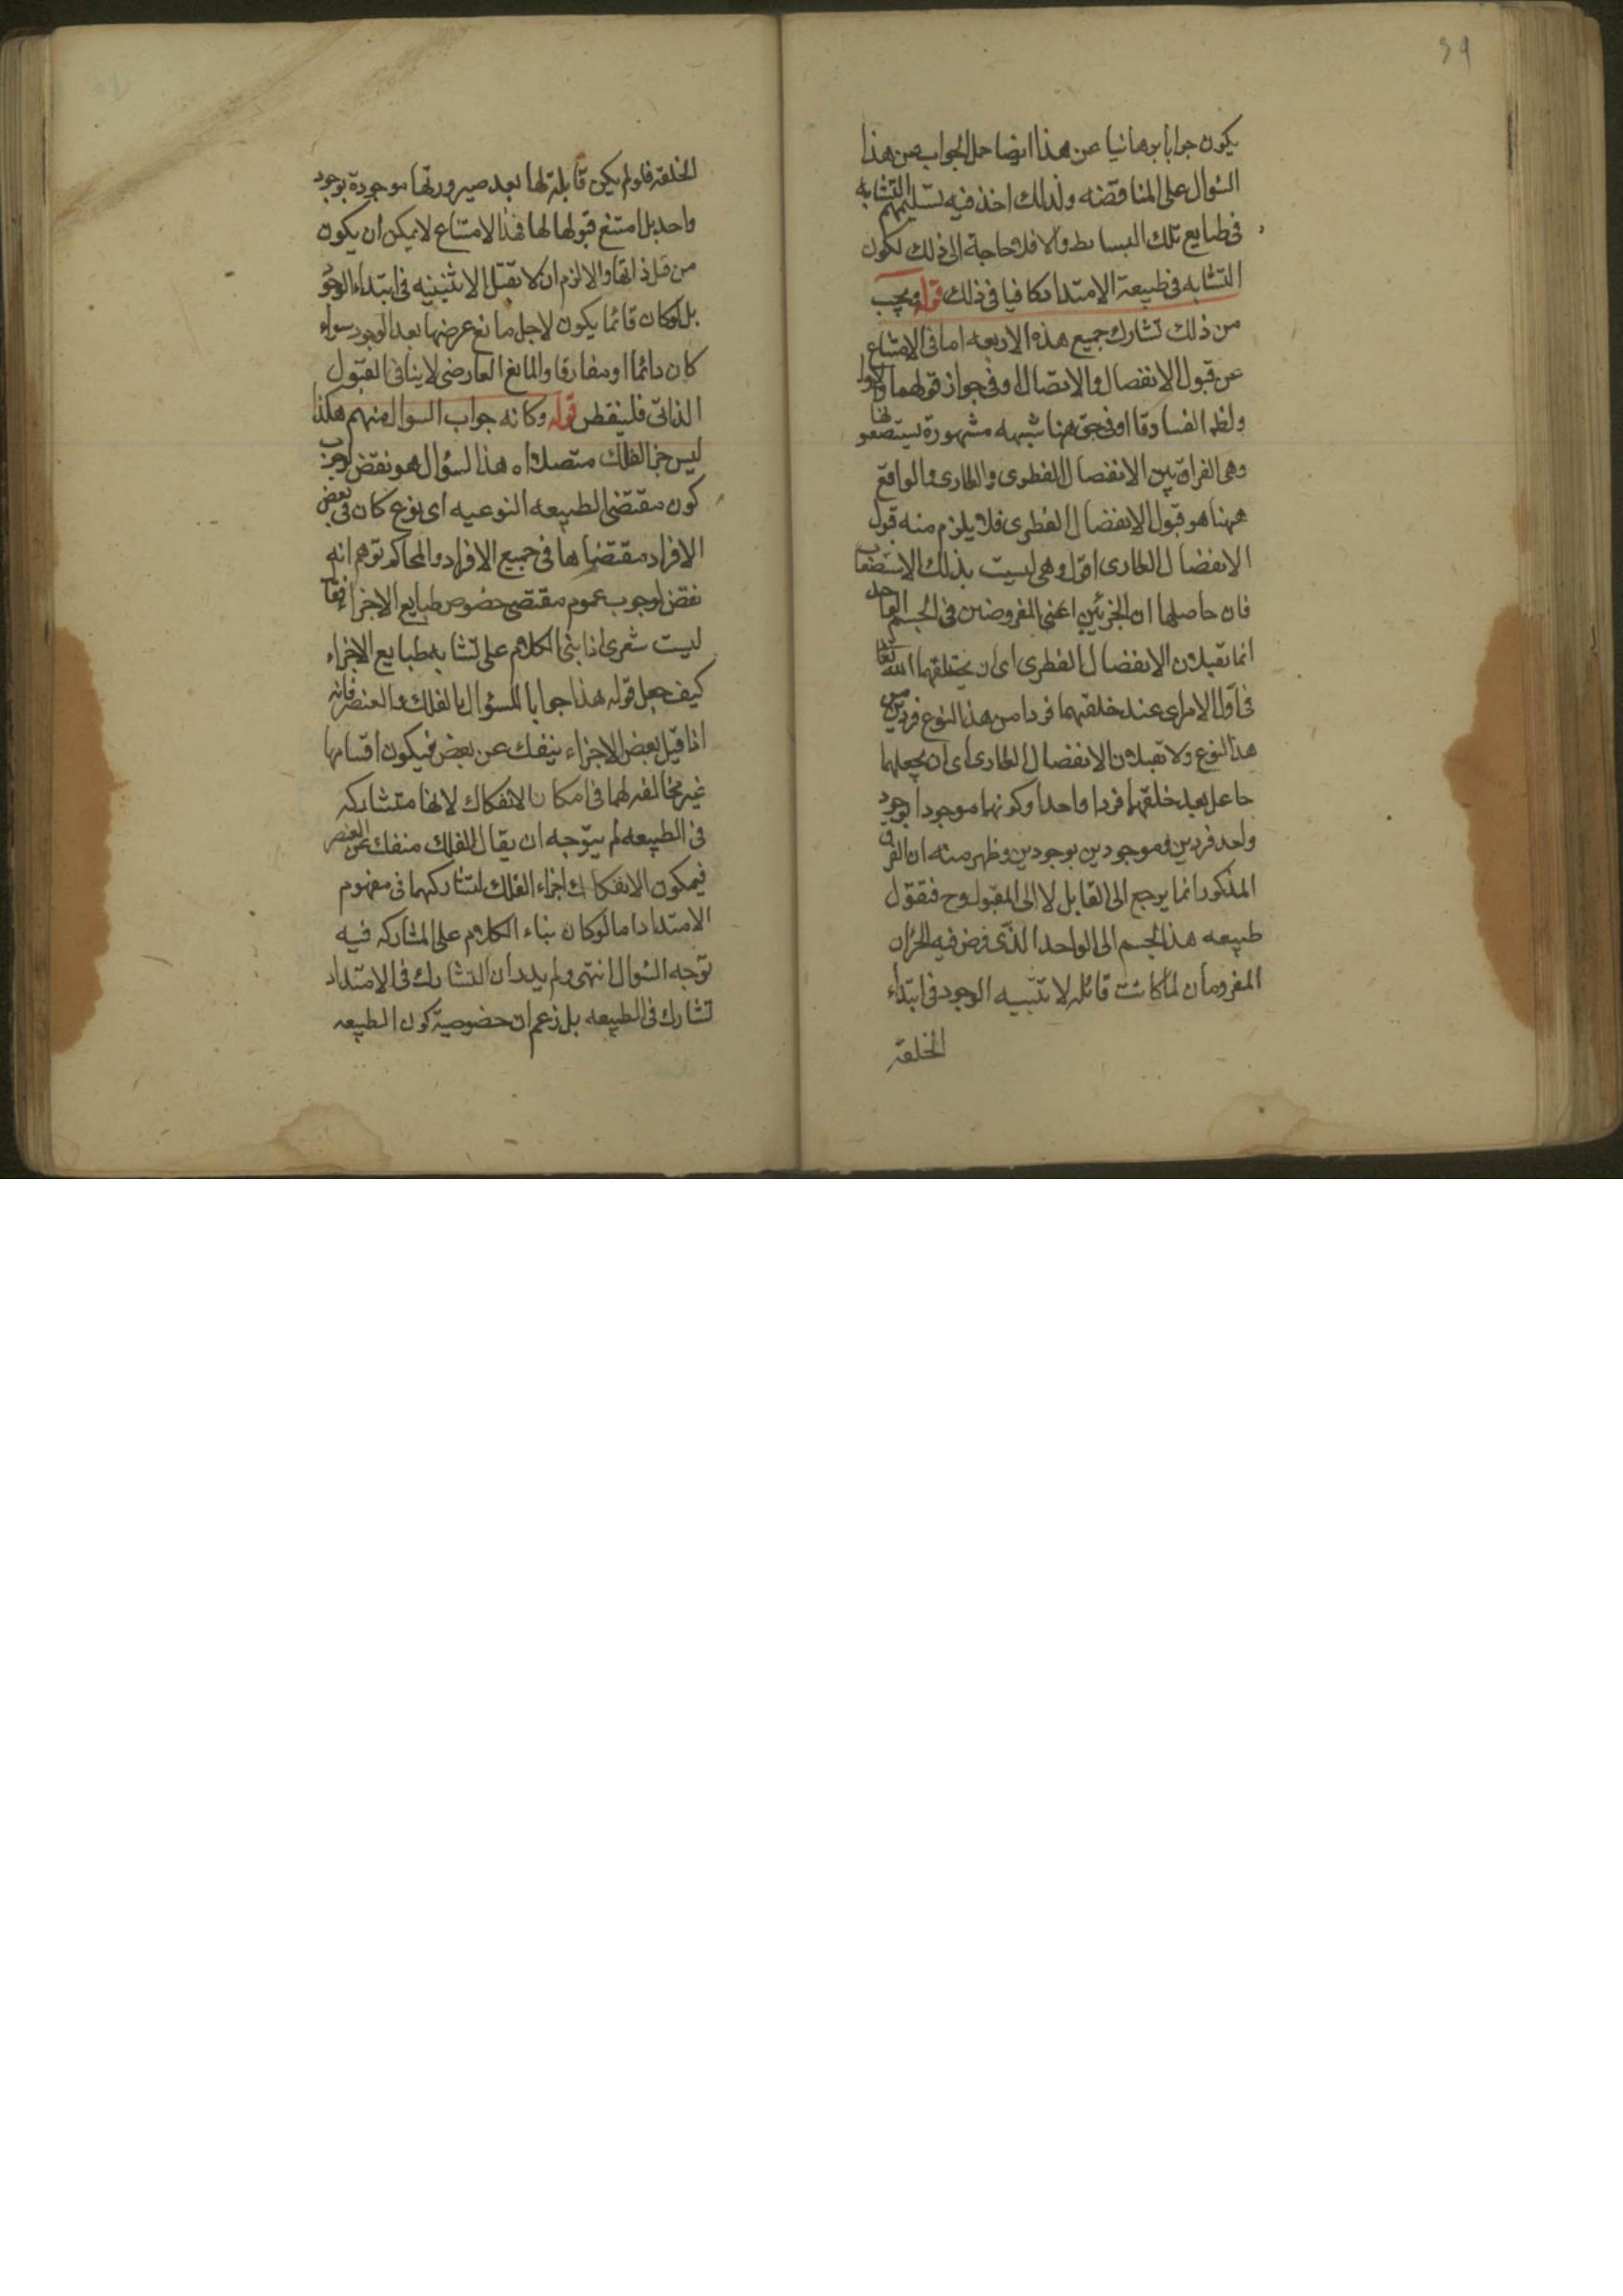 ٣٩
يكون جوابا برهانيا عن هذا ايضا حمل الجواب عن هذا
السؤال على المناقضه ولذلك اخذ فيه تسليمهم التشابه
فى طبايع تلك البسائط والا فلا حاجة الى ذلك لكون
التشابه فى طبيعة الامتداد كافيا فى ذلك قوله ويجب
من ذلك تشارك جميع هذه الاربعه اما فى الامتناع
عن قبول الانفصال والاتصال وفى جواز قبولهما
ههنا شبهه مشهورة
وهى الفراق بين الانفصال الفطرى والطارى والواقع
ههنا هو قبول الانفصال الفطرى فلا يلزم منه قبول
الانفصال الطارى اقول وهى ليست بذلك الاستصعاب
فان حاصلها ان الجزئين اعنى المفروضين فى الجسم الواحد
انما تقبلان الانفصال الفطرى اى ان يخلقهما الله تعالى
فى اول الامر اى عند خلقتهما فردا من هذا النوع فردين من
هذا النوع ولا تقبلان الانفصال الطارى اى ان يجعلهما
جاعل بعد خلقهما فردا واحدا وكونهما موجودا بوجود
واحد فردين وموجودين بوجودين وظهر منه ان الفرق
المذكور انما يرجع الى القابل لا الى المقبول وح فنقول
طبيعه هذا الجسم الى الواحد الذى فرض فيه الجزان
المفروضان لما كانت قابله لاثنينيه الوجود فى ابتداء
الخلقه
الخلقه فلو لم يكن قابلة لها بعد صيرورتها موجودة بوجود
واحد بل امتنع قبولها لها فهذا الامتناع لا يمكن ان يكون
من قبل ذاتها والا لزم ان لا تقبل الاثنينيه فى ابتداء الوجود
بل لو كان قائما يكون لاجل مانع عرضها بعد الوجود سواء
كان دائما او مفارقا والمانع العارضى لا ينافى القبول
الذاتى فليتفطن قوله وكانه جواب السوال منهم هكذا
ليس جزء الفلك متصلا اه هذا السؤال هو نقض لوجوب
كون مقتضى الطبيعه النوعيه اى نوع كان فى بعض
الافراد مقتضاها فى جميع الافراد والمحاكم توهم انه
نقض لوجوب عموم مقتضى خصوص طبايع الاجزاء فقال
ليت شعرى اذا بنى الكلام على تشابه طبايع الاجزاء
كيف جعل قوله هذا جوابا للسؤال بالفلك والعنصر فانه
اذا قيل بعض الاجزاء ينفك عن بعض فيكون اقسامها
غير مخالفه لهما فى امكان الانفكاك لانها متشاركه
فى الطبيعه لم يتوجه ان يقال الفلك منفك عن العنصر
فيمكون الانفكاك اجزاء الفلك لتشاركهما فى مفهوم
الامتداد اما لو كان بناء الكلام على المشاركه فيه
توجه السؤال انتهى ولم يدر ان التشارك فى الامتداد
تشارك فى الطبيعه بل زعم ان خصوصية كون الطبيعه